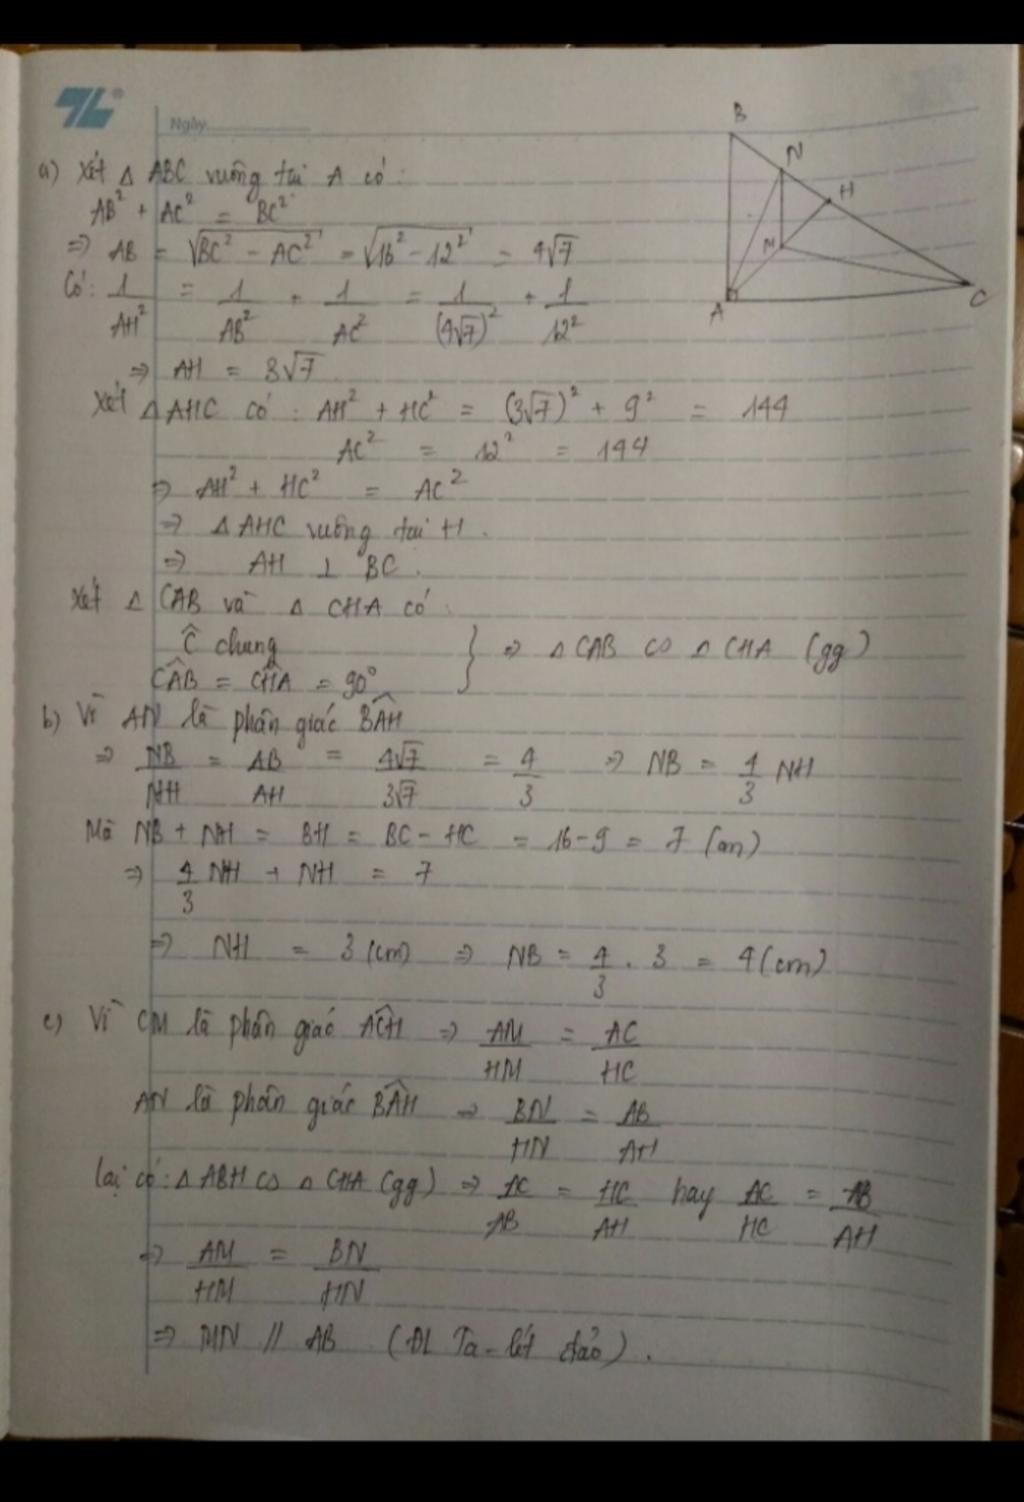 Ngày
B
N
H
M
A
C
a) Xét △ ABC vuông tại A có:
AB² + AC² = BC²
⇒ AB = √(BC² - AC²) = √(16² - 12²) = 4√7
Có: 1/AH² = 1/AB² + 1/AC² = 1/(4√7)² + 1/12²
⇒ AH = 3√7
Xét △AHC có: AH² + HC² = (3√7)² + 9² = 144
AC² = 12² = 144
⇒ AH² + HC² = AC²
⇒ △AHC vuông tại H.
⇒ AH ⊥ BC.
Xét △ CAB và △ CHA có:
Ĉ chung
CÂB = CĤA = 90° } ⇒ △CAB ∽ △CHA (gg)
b) Vì AN là phân giác BÂH
⇒ NB/NH = AB/AH = 4√7/3√7 = 4/3 ⇒ NB = 4/3 NH
Mà NB + NH = BH = BC - HC = 16 - 9 = 7 (cm)
⇒ 4/3 NH + NH = 7
⇒ NH = 3 (cm) ⇒ NB = 4/3 . 3 = 4 (cm)
c) Vì CM là phân giác AĈH ⇒ AM/HM = AC/HC
AN là phân giác BÂH ⇒ BN/HN = AB/AH
lại có: △ABH ∽ △CHA (gg) ⇒ AC/AB = HC/AH hay AC/HC = AB/AH
⇒ AM/HM = BN/HN
⇒ MN // AB (ĐL Ta-lét đảo).